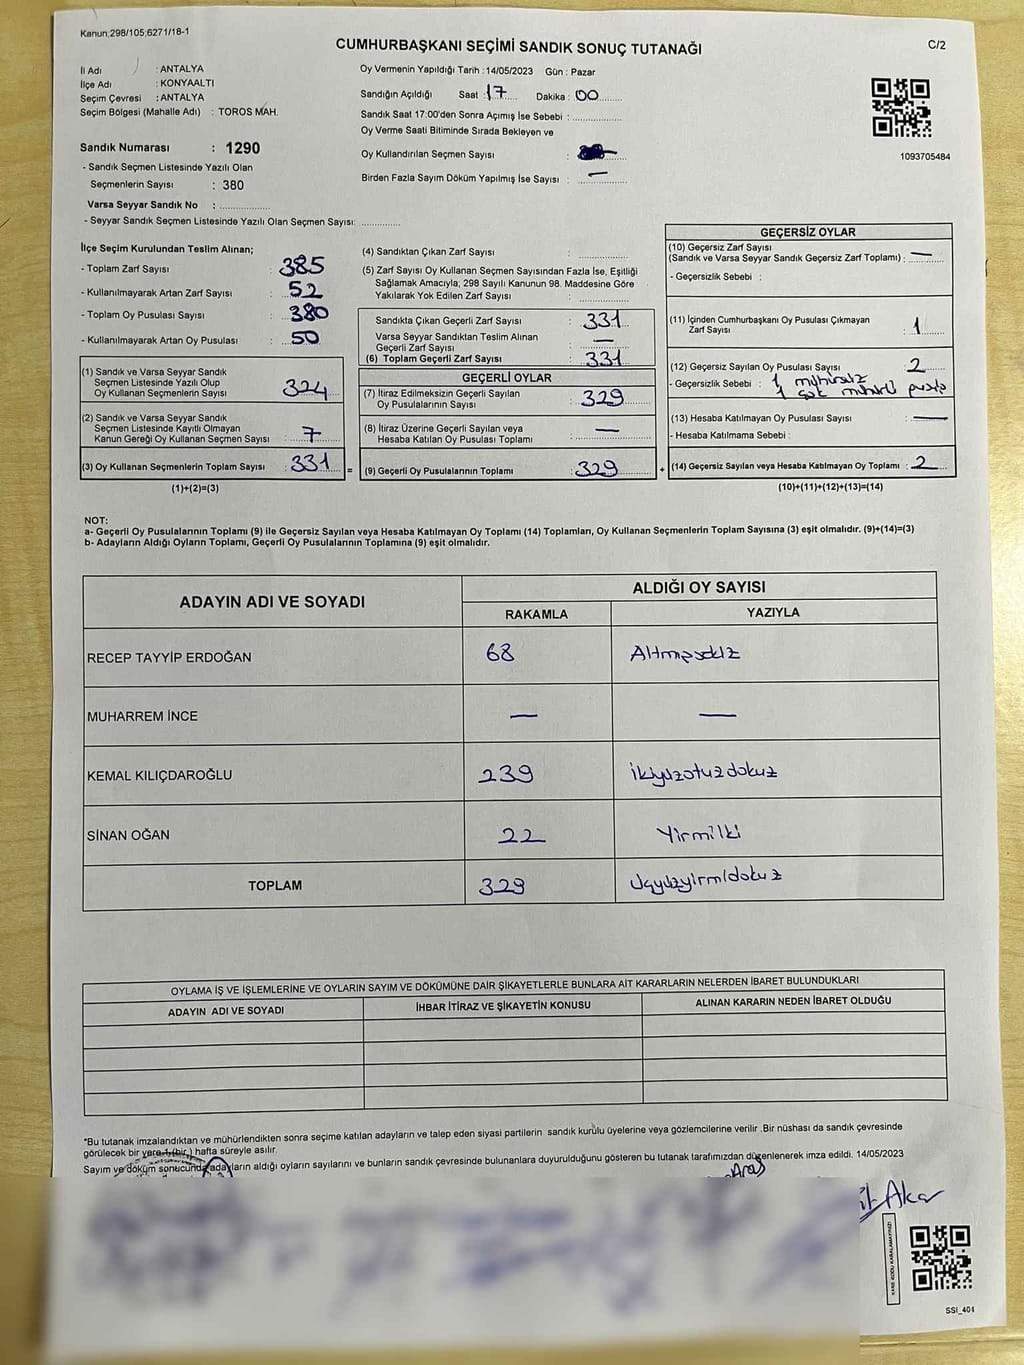 Kanun,298/105;6271/18-1
CUMHURBAŞKANI SEÇİMİ SANDIK SONUÇ TUTANAĞI
C/2
İl Adı : ANTALYA
İlçe Adı : KONYAALTI
Seçim Çevresi : ANTALYA
Seçim Bölgesi (Mahalle Adı) : TOROS MAH.
Sandık Numarası : 1290
- Sandık Seçmen Listesinde Yazılı Olan
Seçmenlerin Sayısı : 380
Varsa Seyyar Sandık No : ..............
- Seyyar Sandık Seçmen Listesinde Yazılı Olan Seçmen Sayısı: ..............
Oy Vermenin Yapıldığı Tarih : 14/05/2023 Gün : Pazar
Sandığın Açıldığı Saat : 17 Dakika : 00
Sandık Saat 17:00'den Sonra Açımış İse Sebebi : ..............
Oy Verme Saati Bitiminde Sırada Bekleyen ve
Oy Kullandırılan Seçmen Sayısı :
Birden Fazla Sayım Döküm Yapılmış İse Sayısı : —
1093705484
İlçe Seçim Kurulundan Teslim Alınan;
- Toplam Zarf Sayısı : 385
- Kullanılmayarak Artan Zarf Sayısı : 52
- Toplam Oy Pusulası Sayısı : 380
- Kullanılmayarak Artan Oy Pusulası : 50
(1) Sandık ve Varsa Seyyar Sandık
Seçmen Listesinde Yazılı Olup
Oy Kullanan Seçmenlerin Sayısı : 324
(2) Sandık ve Varsa Seyyar Sandık
Seçmen Listesinde Kayıtlı Olmayan
Kanun Gereği Oy Kullanan Seçmen Sayısı : 7
(3) Oy Kullanan Seçmenlerin Toplam Sayısı : 331 =
(1)+(2)=(3)
(4) Sandıktan Çıkan Zarf Sayısı : ..............
(5) Zarf Sayısı Oy Kullanan Seçmen Sayısından Fazla İse, Eşitliği
Sağlamak Amacıyla; 298 Sayılı Kanunun 98. Maddesine Göre
Yakılarak Yok Edilen Zarf Sayısı : ..............
Sandıkta Çıkan Geçerli Zarf Sayısı : 331
Varsa Seyyar Sandıktan Teslim Alınan
Geçerli Zarf Sayısı : —
(6) Toplam Geçerli Zarf Sayısı : 331
GEÇERLİ OYLAR
(7) İtiraz Edilmeksizin Geçerli Sayılan
Oy Pusulalarının Sayısı : 329
(8) İtiraz Üzerine Geçerli Sayılan veya
Hesaba Katılan Oy Pusulası Toplamı : —
(9) Geçerli Oy Pusulalarının Toplamı : 329 +
GEÇERSİZ OYLAR
(10) Geçersiz Zarf Sayısı
(Sandık ve Varsa Seyyar Sandık Geçersiz Zarf Toplamı) : —
- Geçersizlik Sebebi :
(11) İçinden Cumhurbaşkanı Oy Pusulası Çıkmayan
Zarf Sayısı : 1
(12) Geçersiz Sayılan Oy Pusulası Sayısı : 2
- Geçersizlik Sebebi : 1 mühürsüz
1 çok mühürlü pusula
(13) Hesaba Katılmayan Oy Pusulası Sayısı : —
- Hesaba Katılmama Sebebi :
(14) Geçersiz Sayılan veya Hesaba Katılmayan Oy Toplamı : 2
(10)+(11)+(12)+(13)=(14)
NOT:
a- Geçerli Oy Pusulalarının Toplamı (9) ile Geçersiz Sayılan veya Hesaba Katılmayan Oy Toplamı (14) Toplamları, Oy Kullanan Seçmenlerin Toplam Sayısına (3) eşit olmalıdır. (9)+(14)=(3)
b- Adayların Aldığı Oyların Toplamı, Geçerli Oy Pusulalarının Toplamına (9) eşit olmalıdır.
ADAYIN ADI VE SOYADI
ALDIĞI OY SAYISI
RAKAMLA YAZIYLA
RECEP TAYYİP ERDOĞAN 68 Altmışsekiz
MUHARREM İNCE — —
KEMAL KILIÇDAROĞLU 239 ikiyüzotuzdokuz
SİNAN OĞAN 22 Yirmiiki
TOPLAM 329 Üçyüzyirmidokuz
OYLAMA İŞ VE İŞLEMLERİNE VE OYLARIN SAYIM VE DÖKÜMÜNE DAİR ŞİKAYETLERLE BUNLARA AİT KARARLARIN NELERDEN İBARET BULUNDUKLARI
ADAYIN ADI VE SOYADI İHBAR İTİRAZ VE ŞİKAYETİN KONUSU ALINAN KARARIN NEDEN İBARET OLDUĞU
*Bu tutanak imzalandıktan ve mühürlendikten sonra seçime katılan adayların ve talep eden siyasi partilerin sandık kurulu üyelerine veya gözlemcilerine verilir .Bir nüshası da sandık çevresinde
görülecek bir yere 1 (bir ) hafta süreyle asılır.
Sayım ve döküm sonucunda adayların aldığı oyların sayılarını ve bunların sandık çevresinde bulunanlara duyurulduğunu gösteren bu tutanak tarafımızdan düzenlenerek imza edildi. 14/05/2023
Aras
Akar
KARE KODU KARALAMAYINIZ!
SSI_404